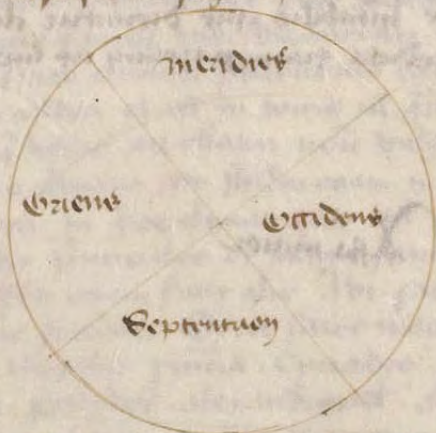 meridies
Oriens
Occidens
Septentrion